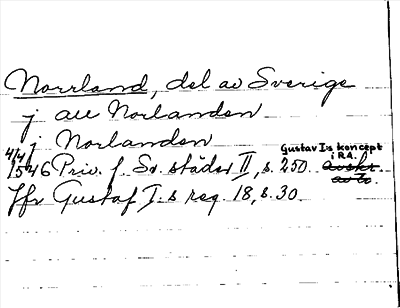 Norrland, del av Sverige
j all Norlanden
j Norlanden
4/4 1546 Priv. f. Sv. städer II, s. 250. Gustav I:s koncept i RA.
Jfr Gustaf I:s reg. 18, s. 30.